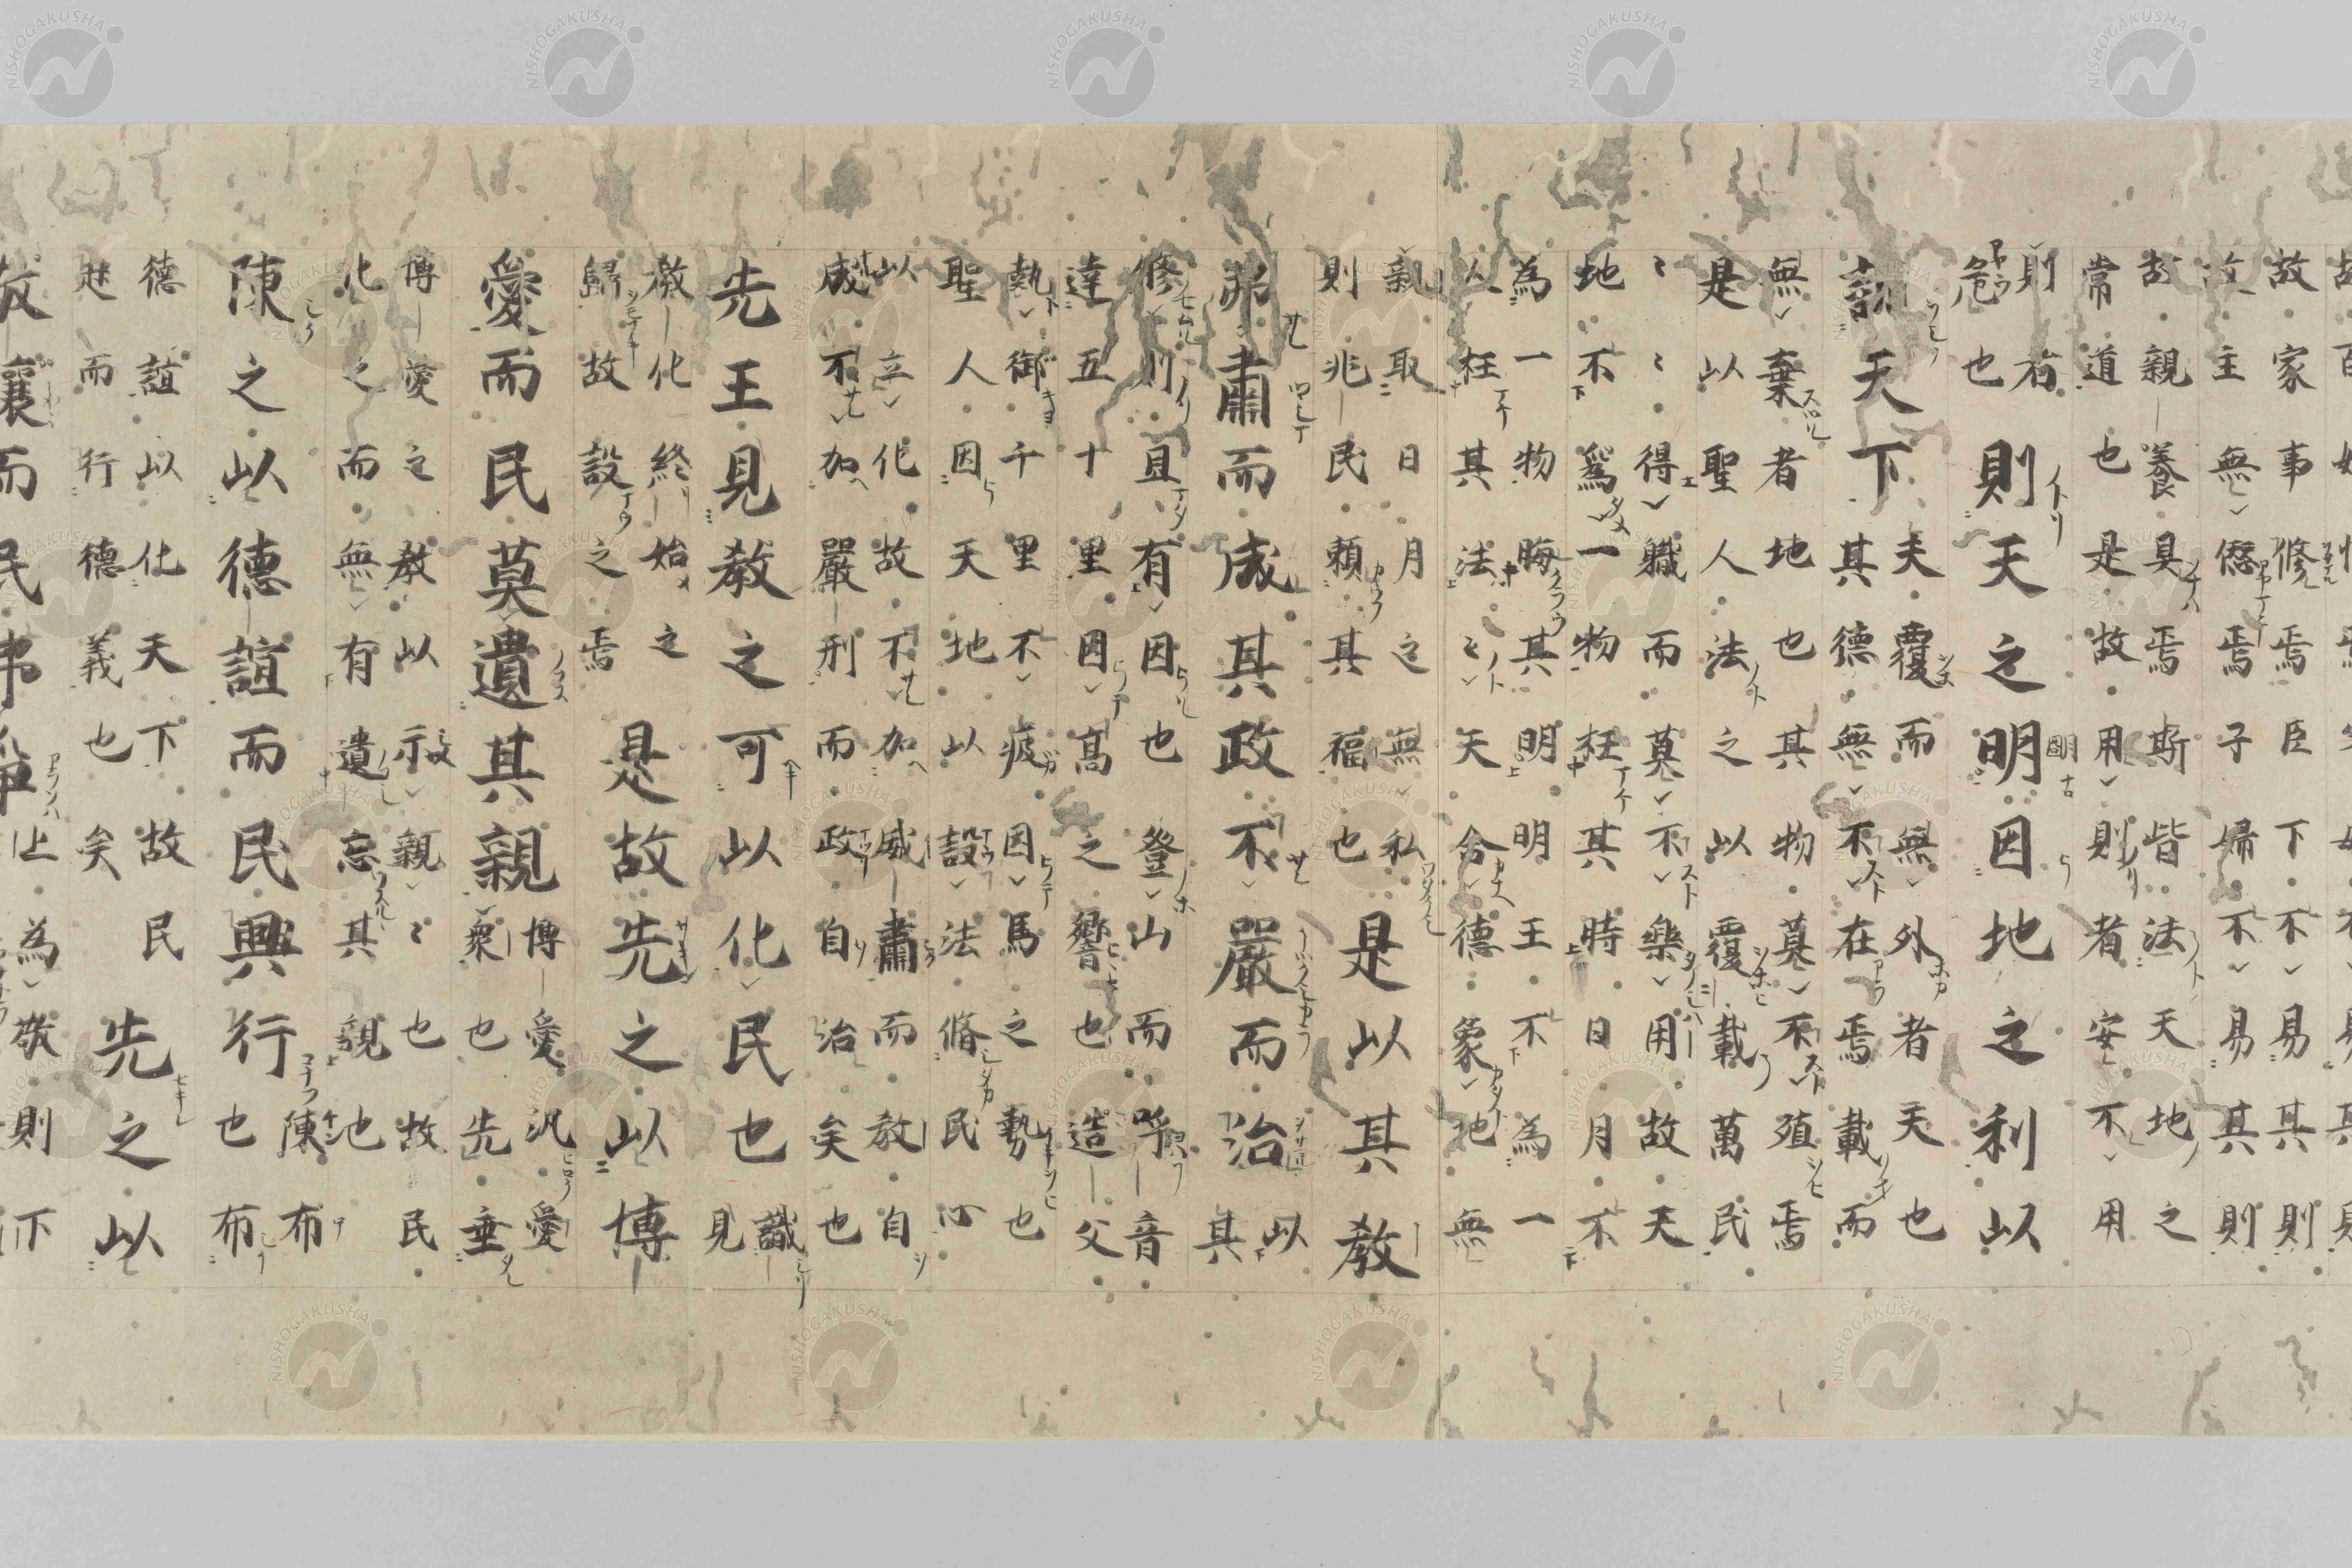 故家事修焉臣下不易其則
故主無僭焉子婦不易其則
故親養具焉斯皆法天地之
常道也是故用則者安不用
則右
危也
則天之明因地之利以
訓天下
夫覆而無外者天也
其德無不在焉載而
無棄者地也其物莫不殖焉
是以聖人法之以覆載萬民
〻〻得職而莫不樂用故天
地不為一物枉其時日月不
為一物晦其明明王不為一
人枉其法〻天合德象地無
親取日月之無私
則兆民頼其福也
是以其教
弗肅而成其政不嚴而治
以
其
修則且有因也登山而呼音
達五十里因高之響也造父
執御千里不疲因馬之勢也
聖人因天地以設法脩民心
以立化故不加威肅而教自
成不加嚴刑而政自治矣也
先王見教之可以化民也
識
見
教化終始之
歸故設之焉
是故先之以博
愛而民莫遺其親
博愛汎愛
衆也先垂
博愛之教以示親〻也故民
化之而無有遺忘其親也
陳之以德誼而民興行
陳布
也布
德誼以化天下故民
起而行德義也矣
先之以
而民弗
上為敬則下